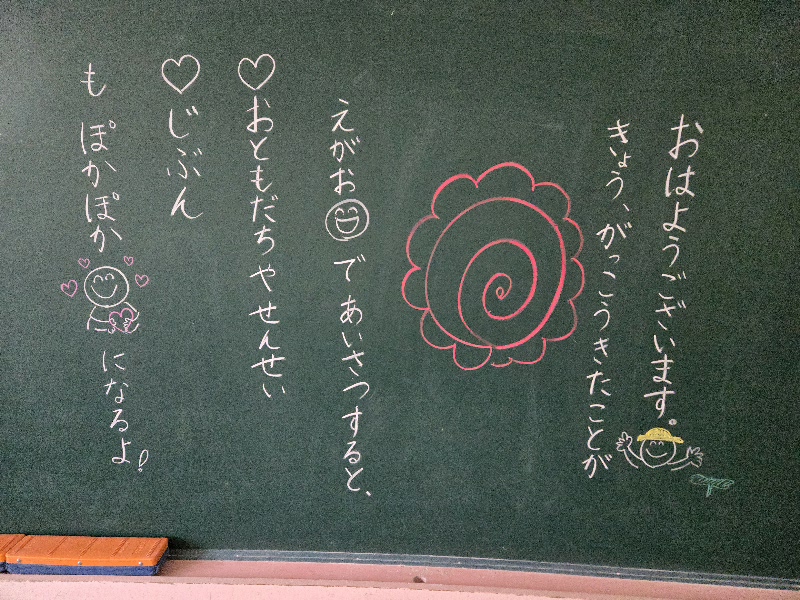 おはようございます。
きょう、がっこうきたことが
えがお であいさつすると、
♡おともだちやせんせい
♡じぶん
も ぽかぽか になるよ!